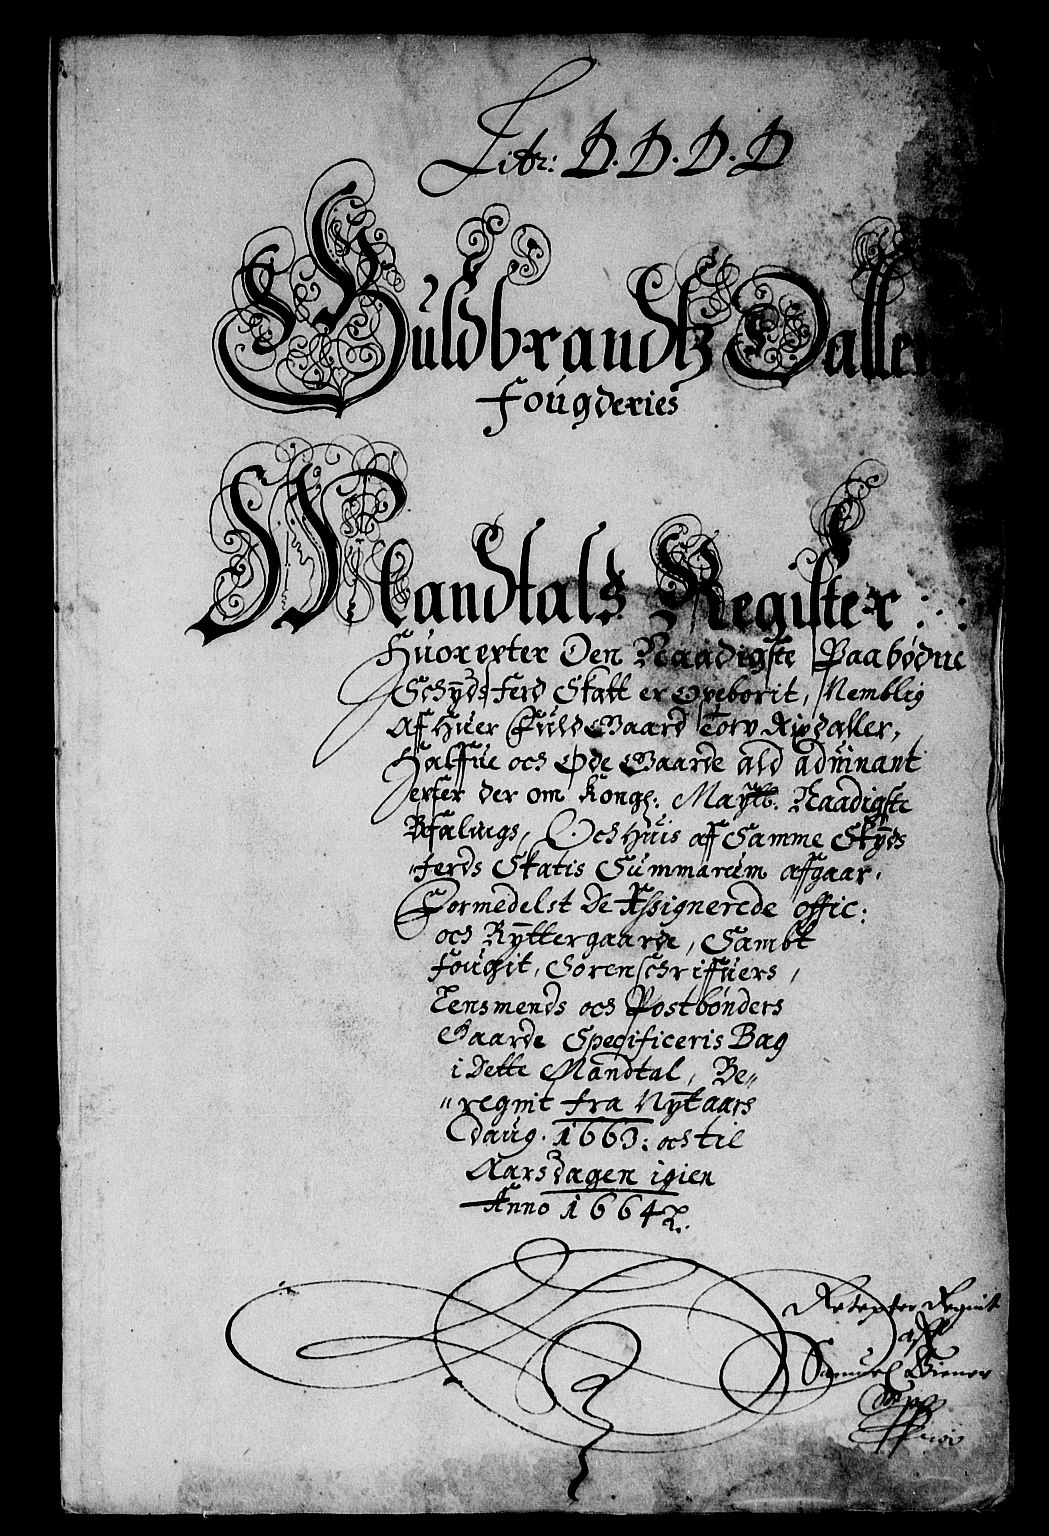 Litr: D. D. D. D
Guldbrandtz Dallens
Fougderies
Mandtals Register
Huorefter Den Naadigste Paabødne
Schÿds ferd Skatt er opeborit, Nemblig
Af Huer Fuld Gaard Tow Rixdaller,
Halfue och Øde Gaarde ald adminant
efter der om Kongl: Maÿtz. Naadigste
Befalings, Och Huis aff Samme Skÿds
ferds Skatis Summarum affgaar,
Formedelst De Assignerede offic:
och Rÿttergaarde, Sambt
fougit, Sorenschriffuers,
Lensmends och Postbønders
Gaarde Specificeris Bag
i Dette Mandtal, Be„
„regnit fra Nÿtaars
daug. 1663: och til
Aarsdagen igien
Anno 1664
Regnit
aff
Samuel Wiener